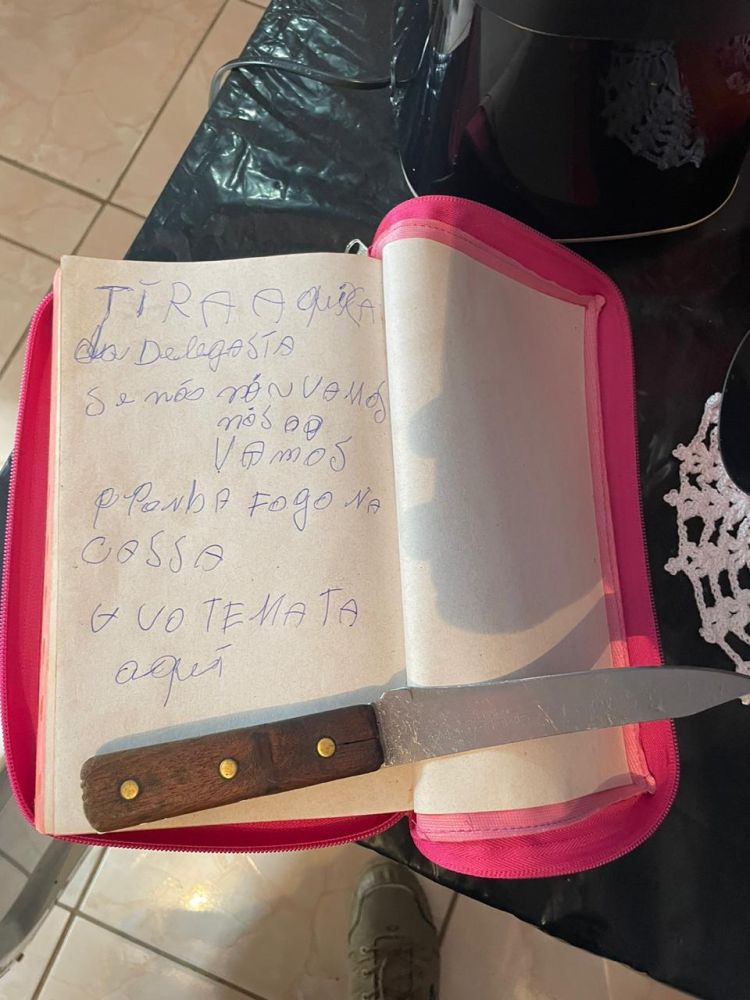 TIRA A queixa
da DelegASIA
Se nós nó N VAMOS
nós ao
VAmOS
PPonhA FOGO NA
COSSA
VO TEMATA
aquí